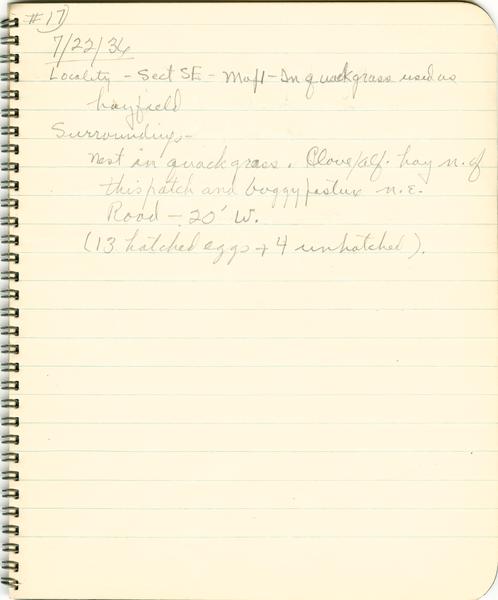 #17)
7/22/36
Locality - Sect SE - Map 1 - In quackgrass used as
hayfield
Surroundings -
Nest in quackgrass. Clover/alf. hay N. of
this patch and boggy pasture N.E.
Road - 20' W.
(13 hatched eggs + 4 unhatched).